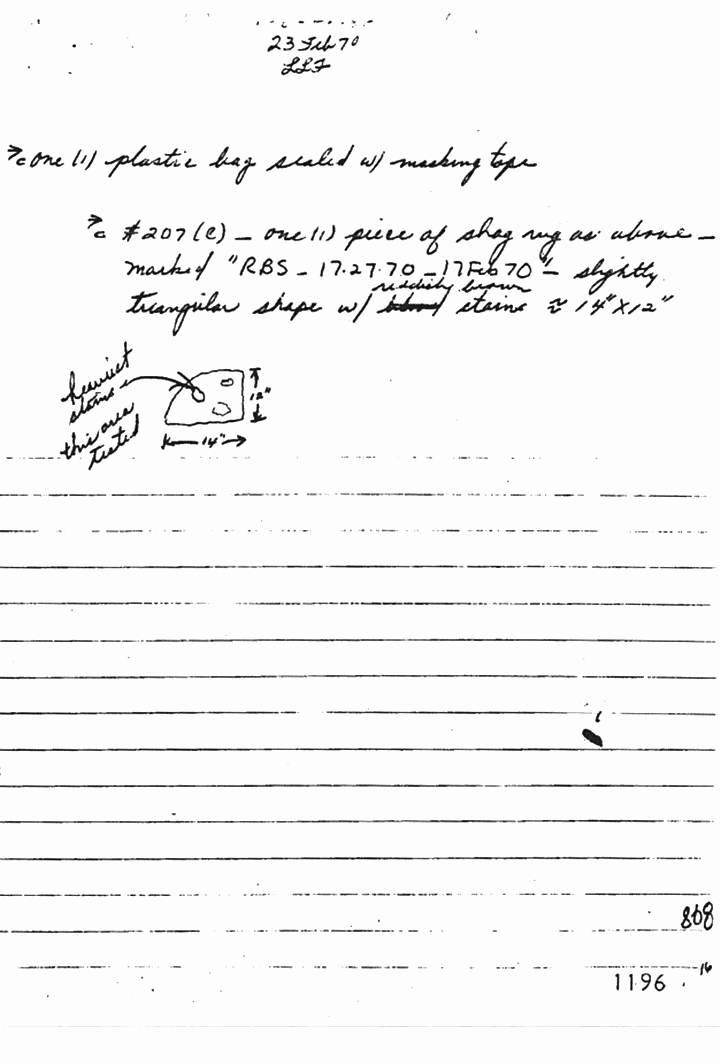 23 Feb 70
LLF
→ c one (1) plastic bag sealed w/ masking tape
→ c #207(E) – one (1) piece of shag rug as above –
marked "RBS – 17.27.70 – 17Feb70" – slightly
reddish brown
triangular shape w/ stains ≈ 14"X12"
heaviest
stains –
this area
tested
12"
14"
868
16
1196